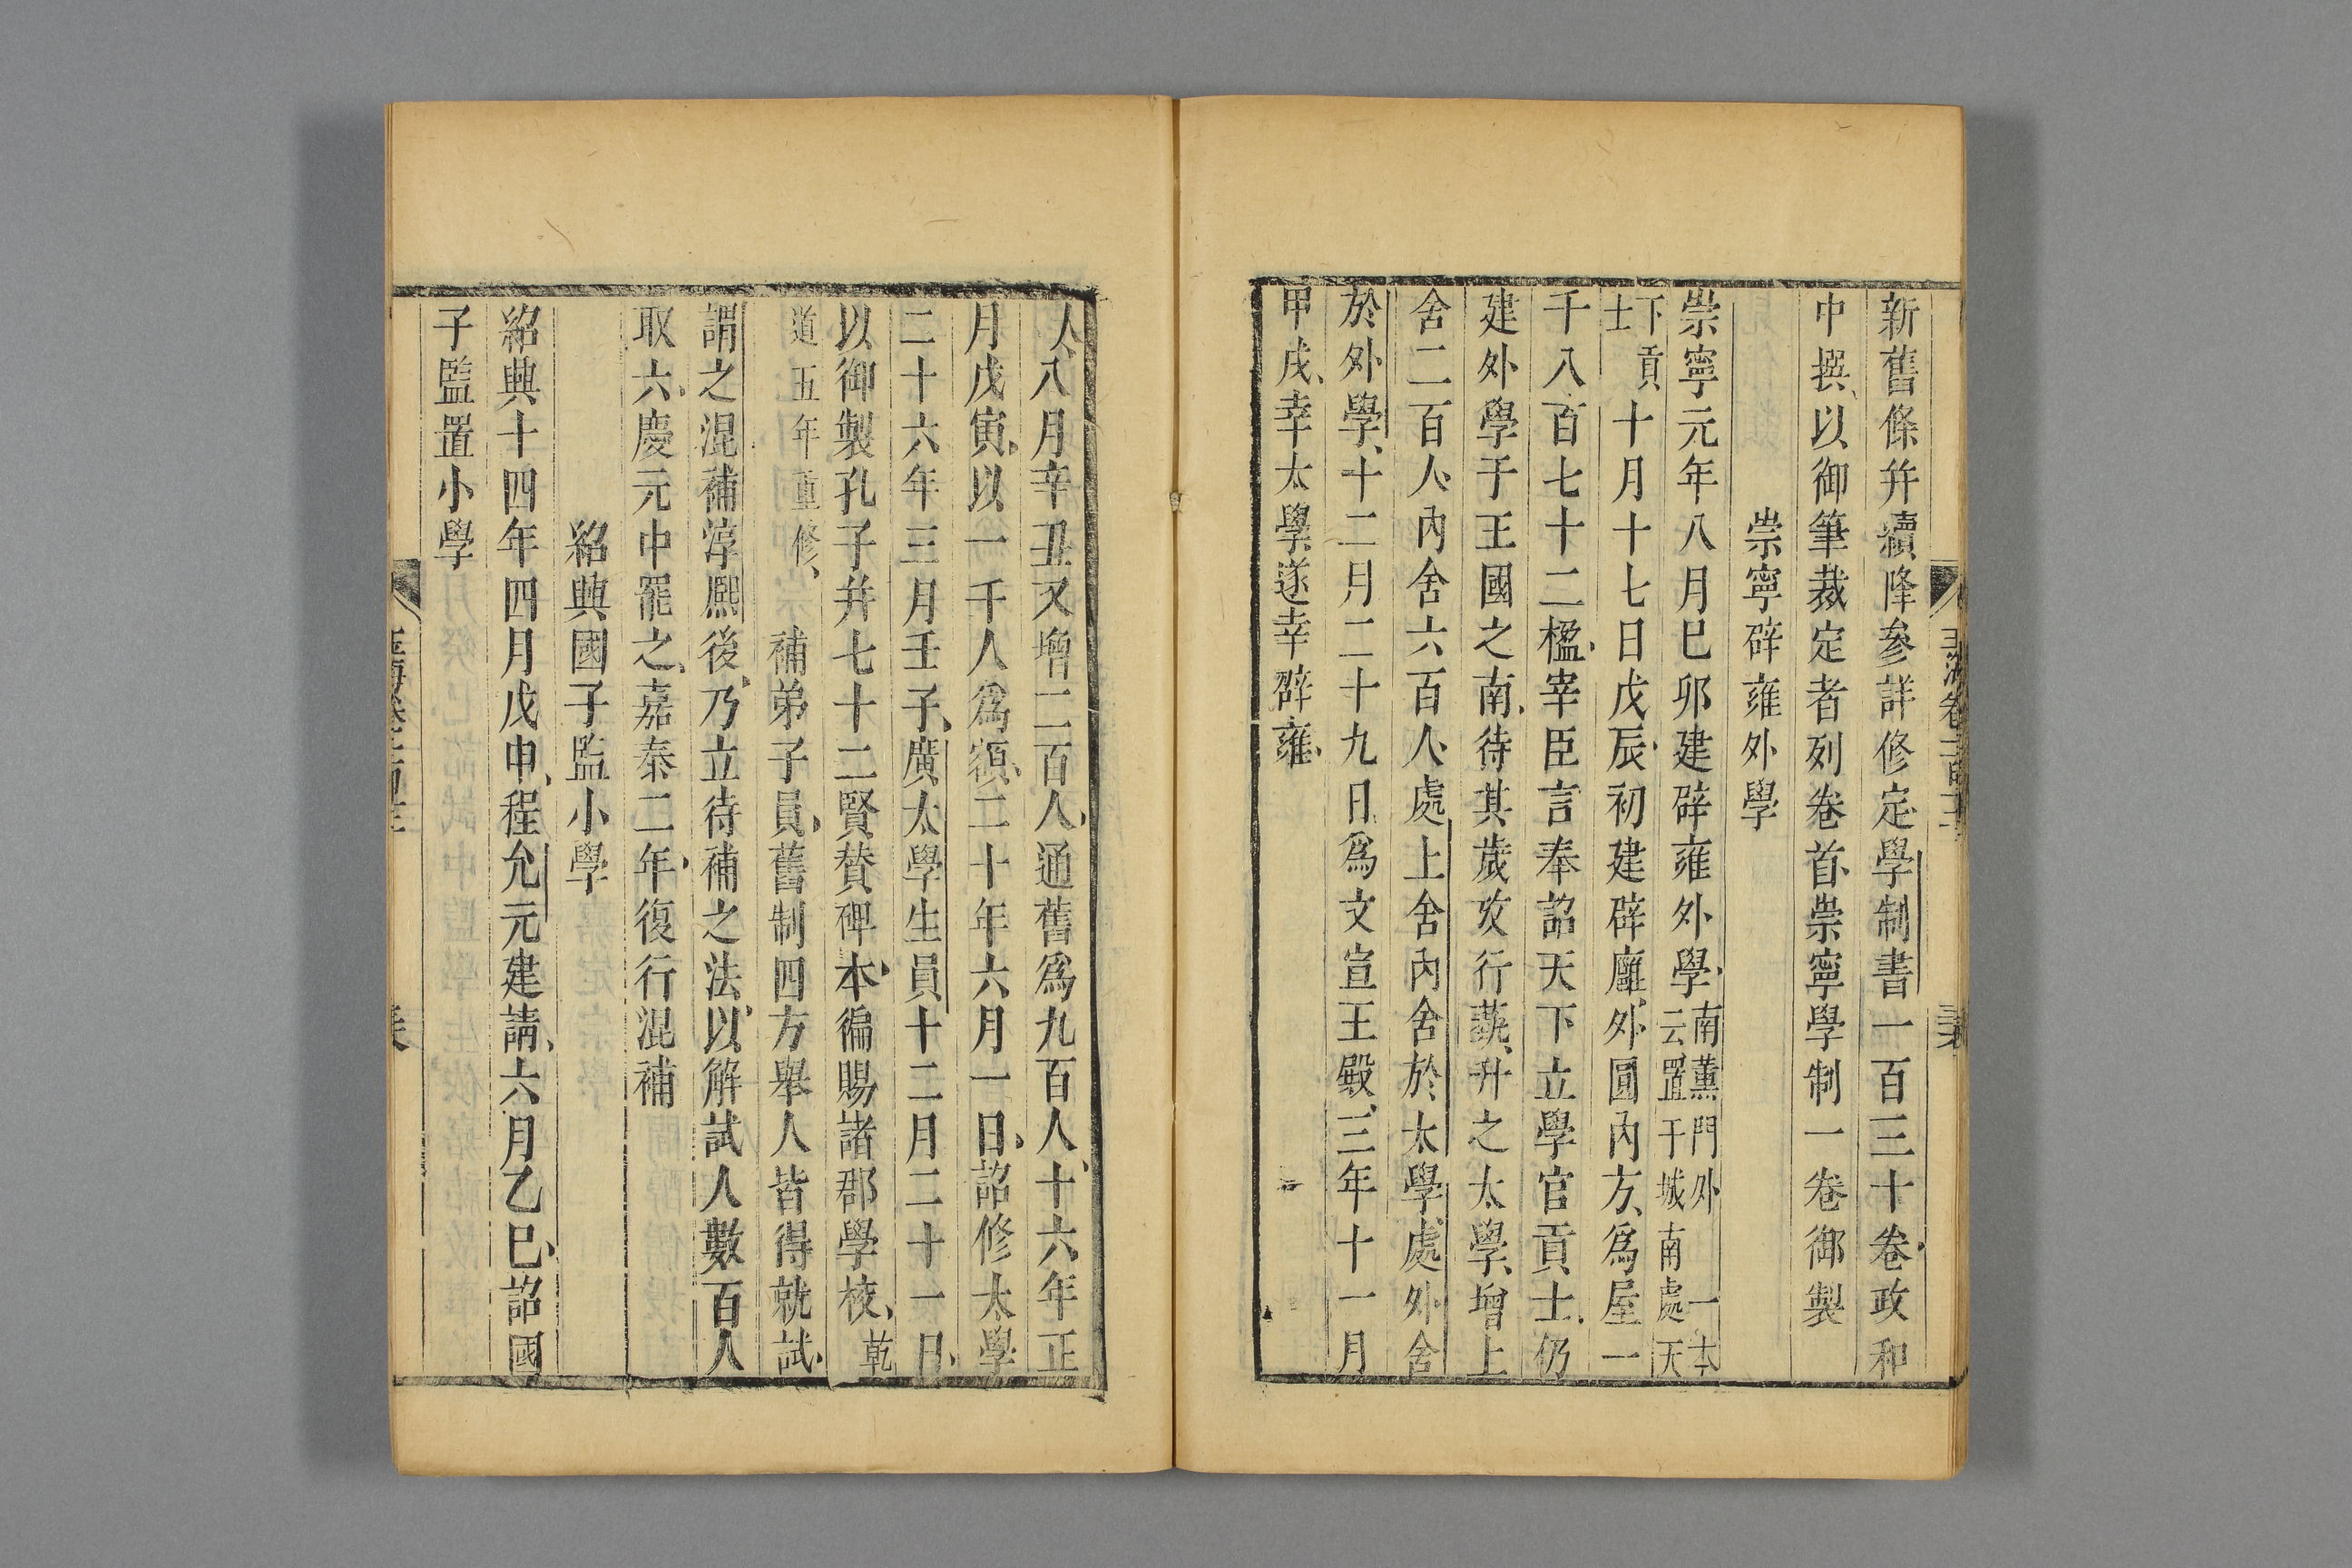 新舊條并續降參詳修定學制書一百三十卷政和
中撰以御筆裁定者列卷首崇寧學制一卷御製
崇寧辟雍外學
崇寧元年八月巳卯建辟雍外學南薰門外一本云置于城南處天
下貢士十月十七日戊辰初建辟廱外圓內方爲屋一
千八百七十二楹宰臣言奉詔天下立學官貢士仍
建外學于王國之南待其歲攷行藝升之太學增上
舍二百人內舍六百人處上舍內舍於太學處外舍
於外學十二月二十九日爲文宣王殿三年十一月
甲戌幸太學遂幸辟雍
人八月辛丑又增二百人通舊爲九百人十六年正
月戊寅以一千人爲額二十年六月一日詔修太學
二十六年三月壬子廣太學生員十二月二十一日
以御製孔子并七十二賢贊碑本徧賜諸郡學校乾
道五年重修補弟子員舊制四方舉人皆得就試
謂之混補淳熙後乃立待補之法以解試人數百人
取六慶元中罷之嘉泰二年復行混補
紹興國子監小學
紹興十四年四月戊申程允元建請六月乙巳詔國
子監置小學